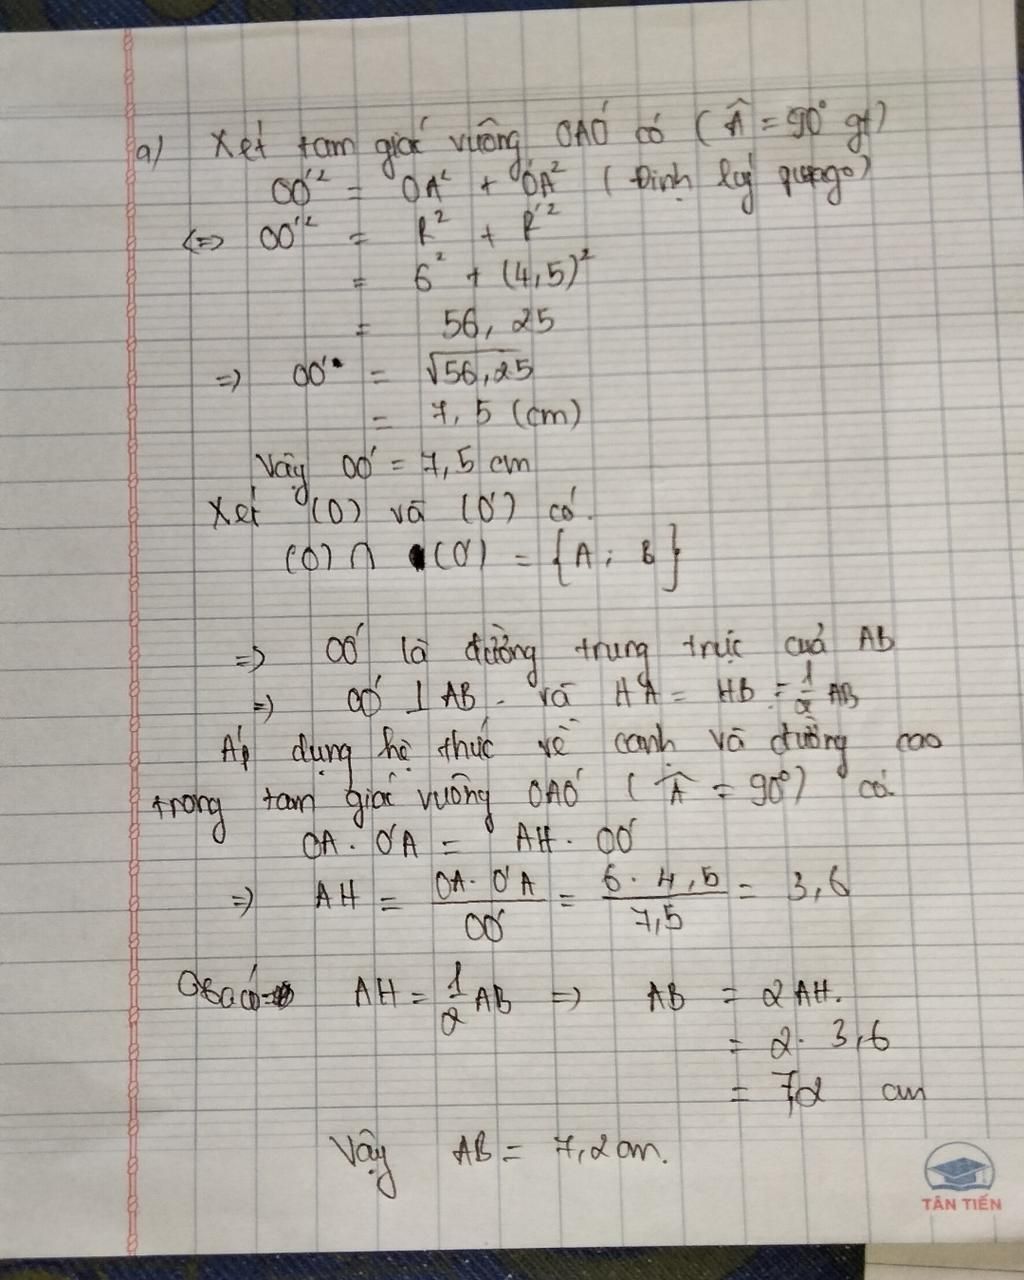 a) Xét tam giác vuông OAO' có ( Â = 90° gt)
OO'² = OA² + O'A² ( Định lý pytago)
<=> OO'² = R² + R'²
= 6² + (4,5)²
= 56,25
=> OO' = √56,25
= 7,5 (cm)
Vậy OO' = 7,5 cm
Xét (O) và (O') có.
(O) ∩ (O') = {A; B}
=> OO' là đường trung trực của AB
=> OO' ⊥ AB. và HA = HB = 1/2 AB
Áp dụng hệ thức về cạnh và đường cao
trong tam giác vuông OAO' ( Â = 90°) có
OA. O'A = AH. OO'
=> AH = OA. O'A / OO' = 6. 4,5 / 7,5 = 3,6
có AH = 1/2 AB => AB = 2 AH.
= 2. 3,6
= 7,2 cm
Vậy AB = 7,2 cm.
TÂN TIẾN